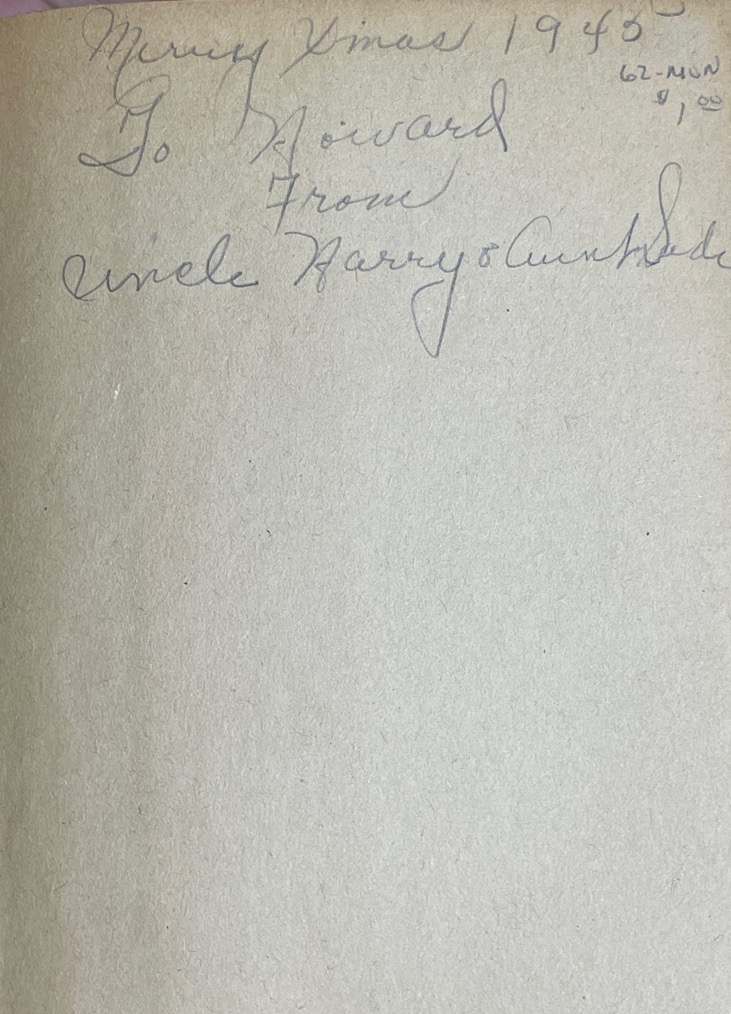 Merry Xmas 1945
62-MON
$1.00
To Howard
From
Uncle Harry & Aunt